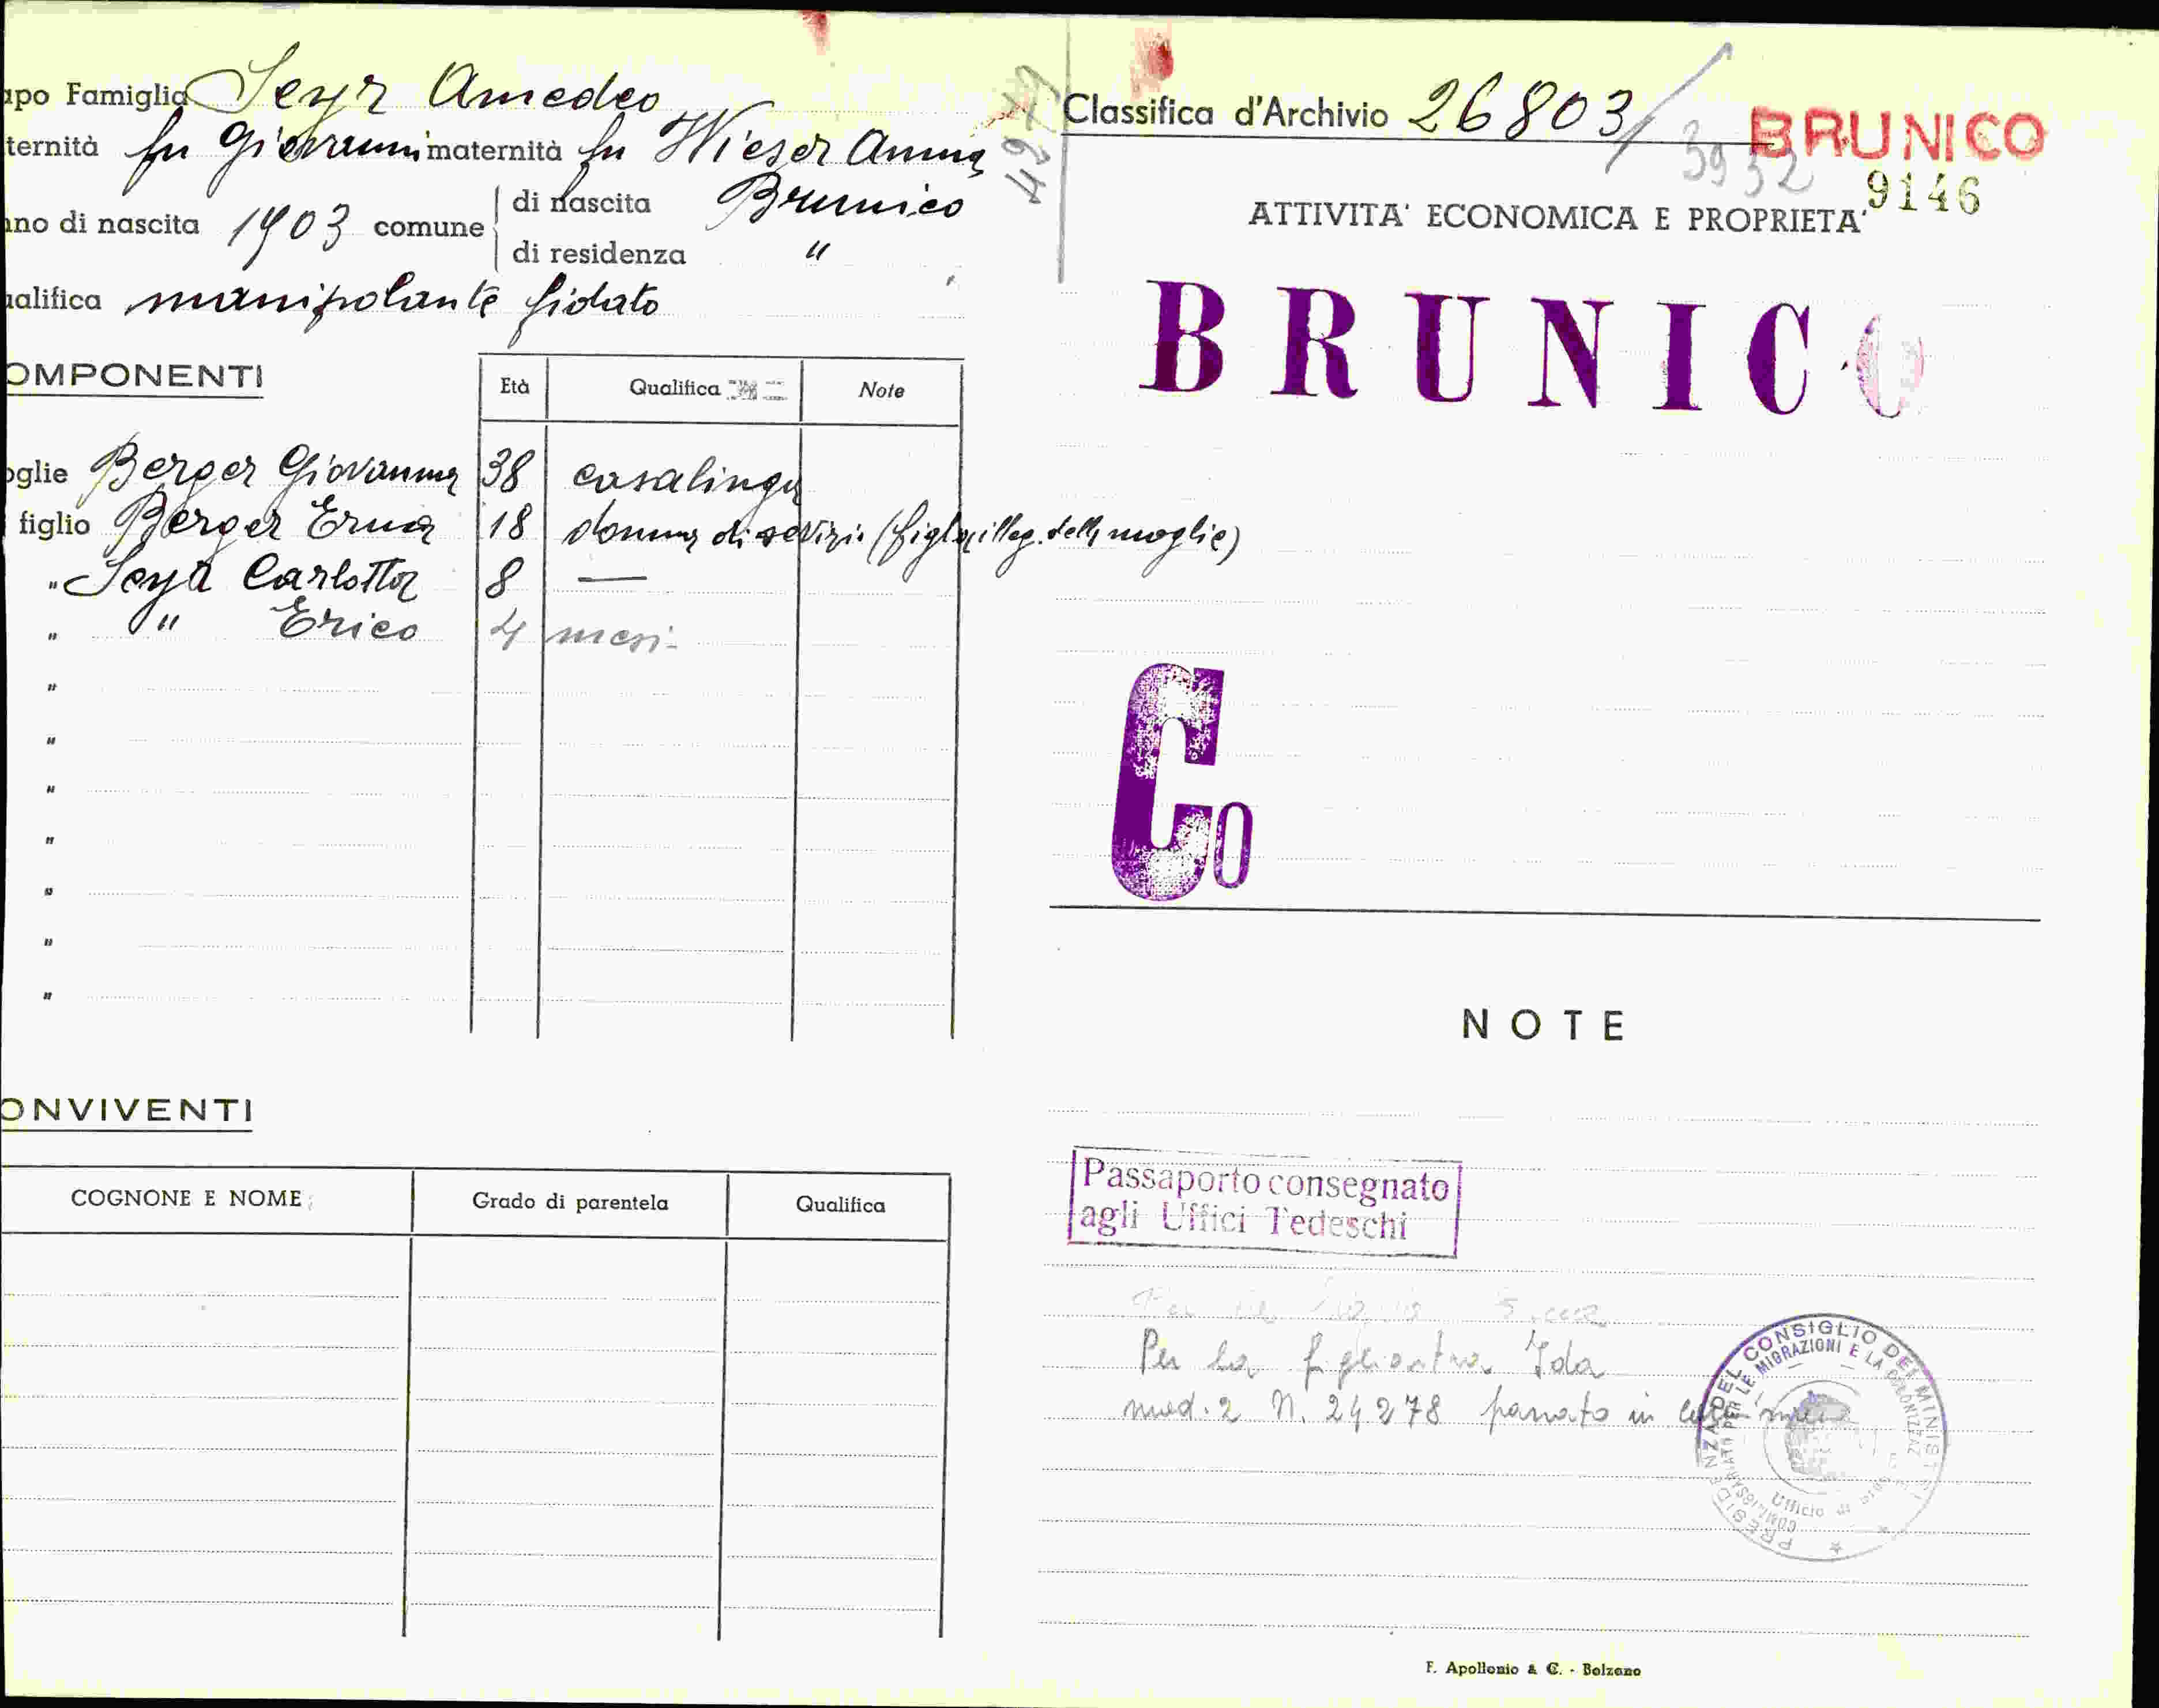 apo Famiglia Seyr Amedeo
ternità fu Giovanni maternità fu Wieser Anna
no di nascita 1903 comune di nascita Brunico
di residenza "
alifica manipolante fidato
OMPONENTI
Età Qualifica Note
oglie Berger Giovanna 38 casalinga
figlio Berger Erna 18 donna di servizio (figlia illeg. della moglie)
" Seyr Carlotta 8 —
" " Erico 4 mesi
"
"
"
"
"
"
"
ONVIVENTI
COGNONE E NOME Grado di parentela Qualifica
Classifica d'Archivio 26803/
3932
BRUNICO
9146
ATTIVITA' ECONOMICA E PROPRIETA'
BRUNICO
Co
NOTE
Passaporto consegnato
agli Uffici Tedeschi
Per la figliastra Ida
mod. 2 N. 24278 passato in
PRESIDENZA DEL CONSIGLIO DEI MINISTRI
COMMISSARIATO PER LE MIGRAZIONI E LA COLONIZZAZ
Ufficio di
F. Apollonio & C. - Bolzano